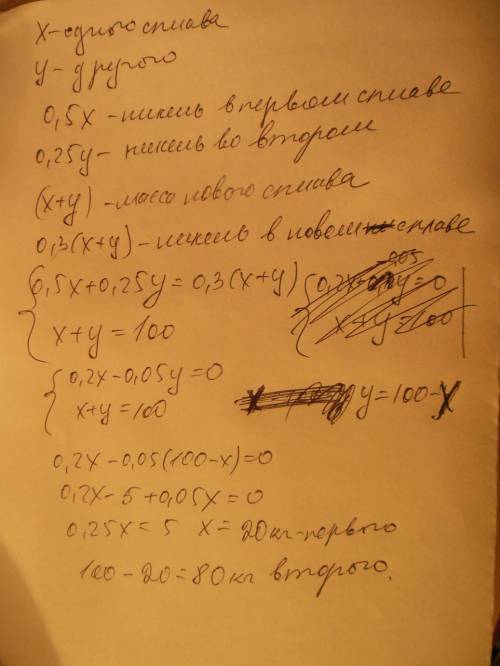 x - одного сплава
y - другого
0,5x - никель в первом сплаве
0,25y - никель во втором
(x+y) - масса нового сплава
0,3(x+y) - никель в новом сплаве
0,5x+0,25y=0,3(x+y)
x+y=100
0,2x-0,05y=0
x+y=100
y=100-x
0,2x-0,05(100-x)=0
0,2x-5+0,05x=0
0,25x=5 x=20кг-первого
100-20=80кг второго.